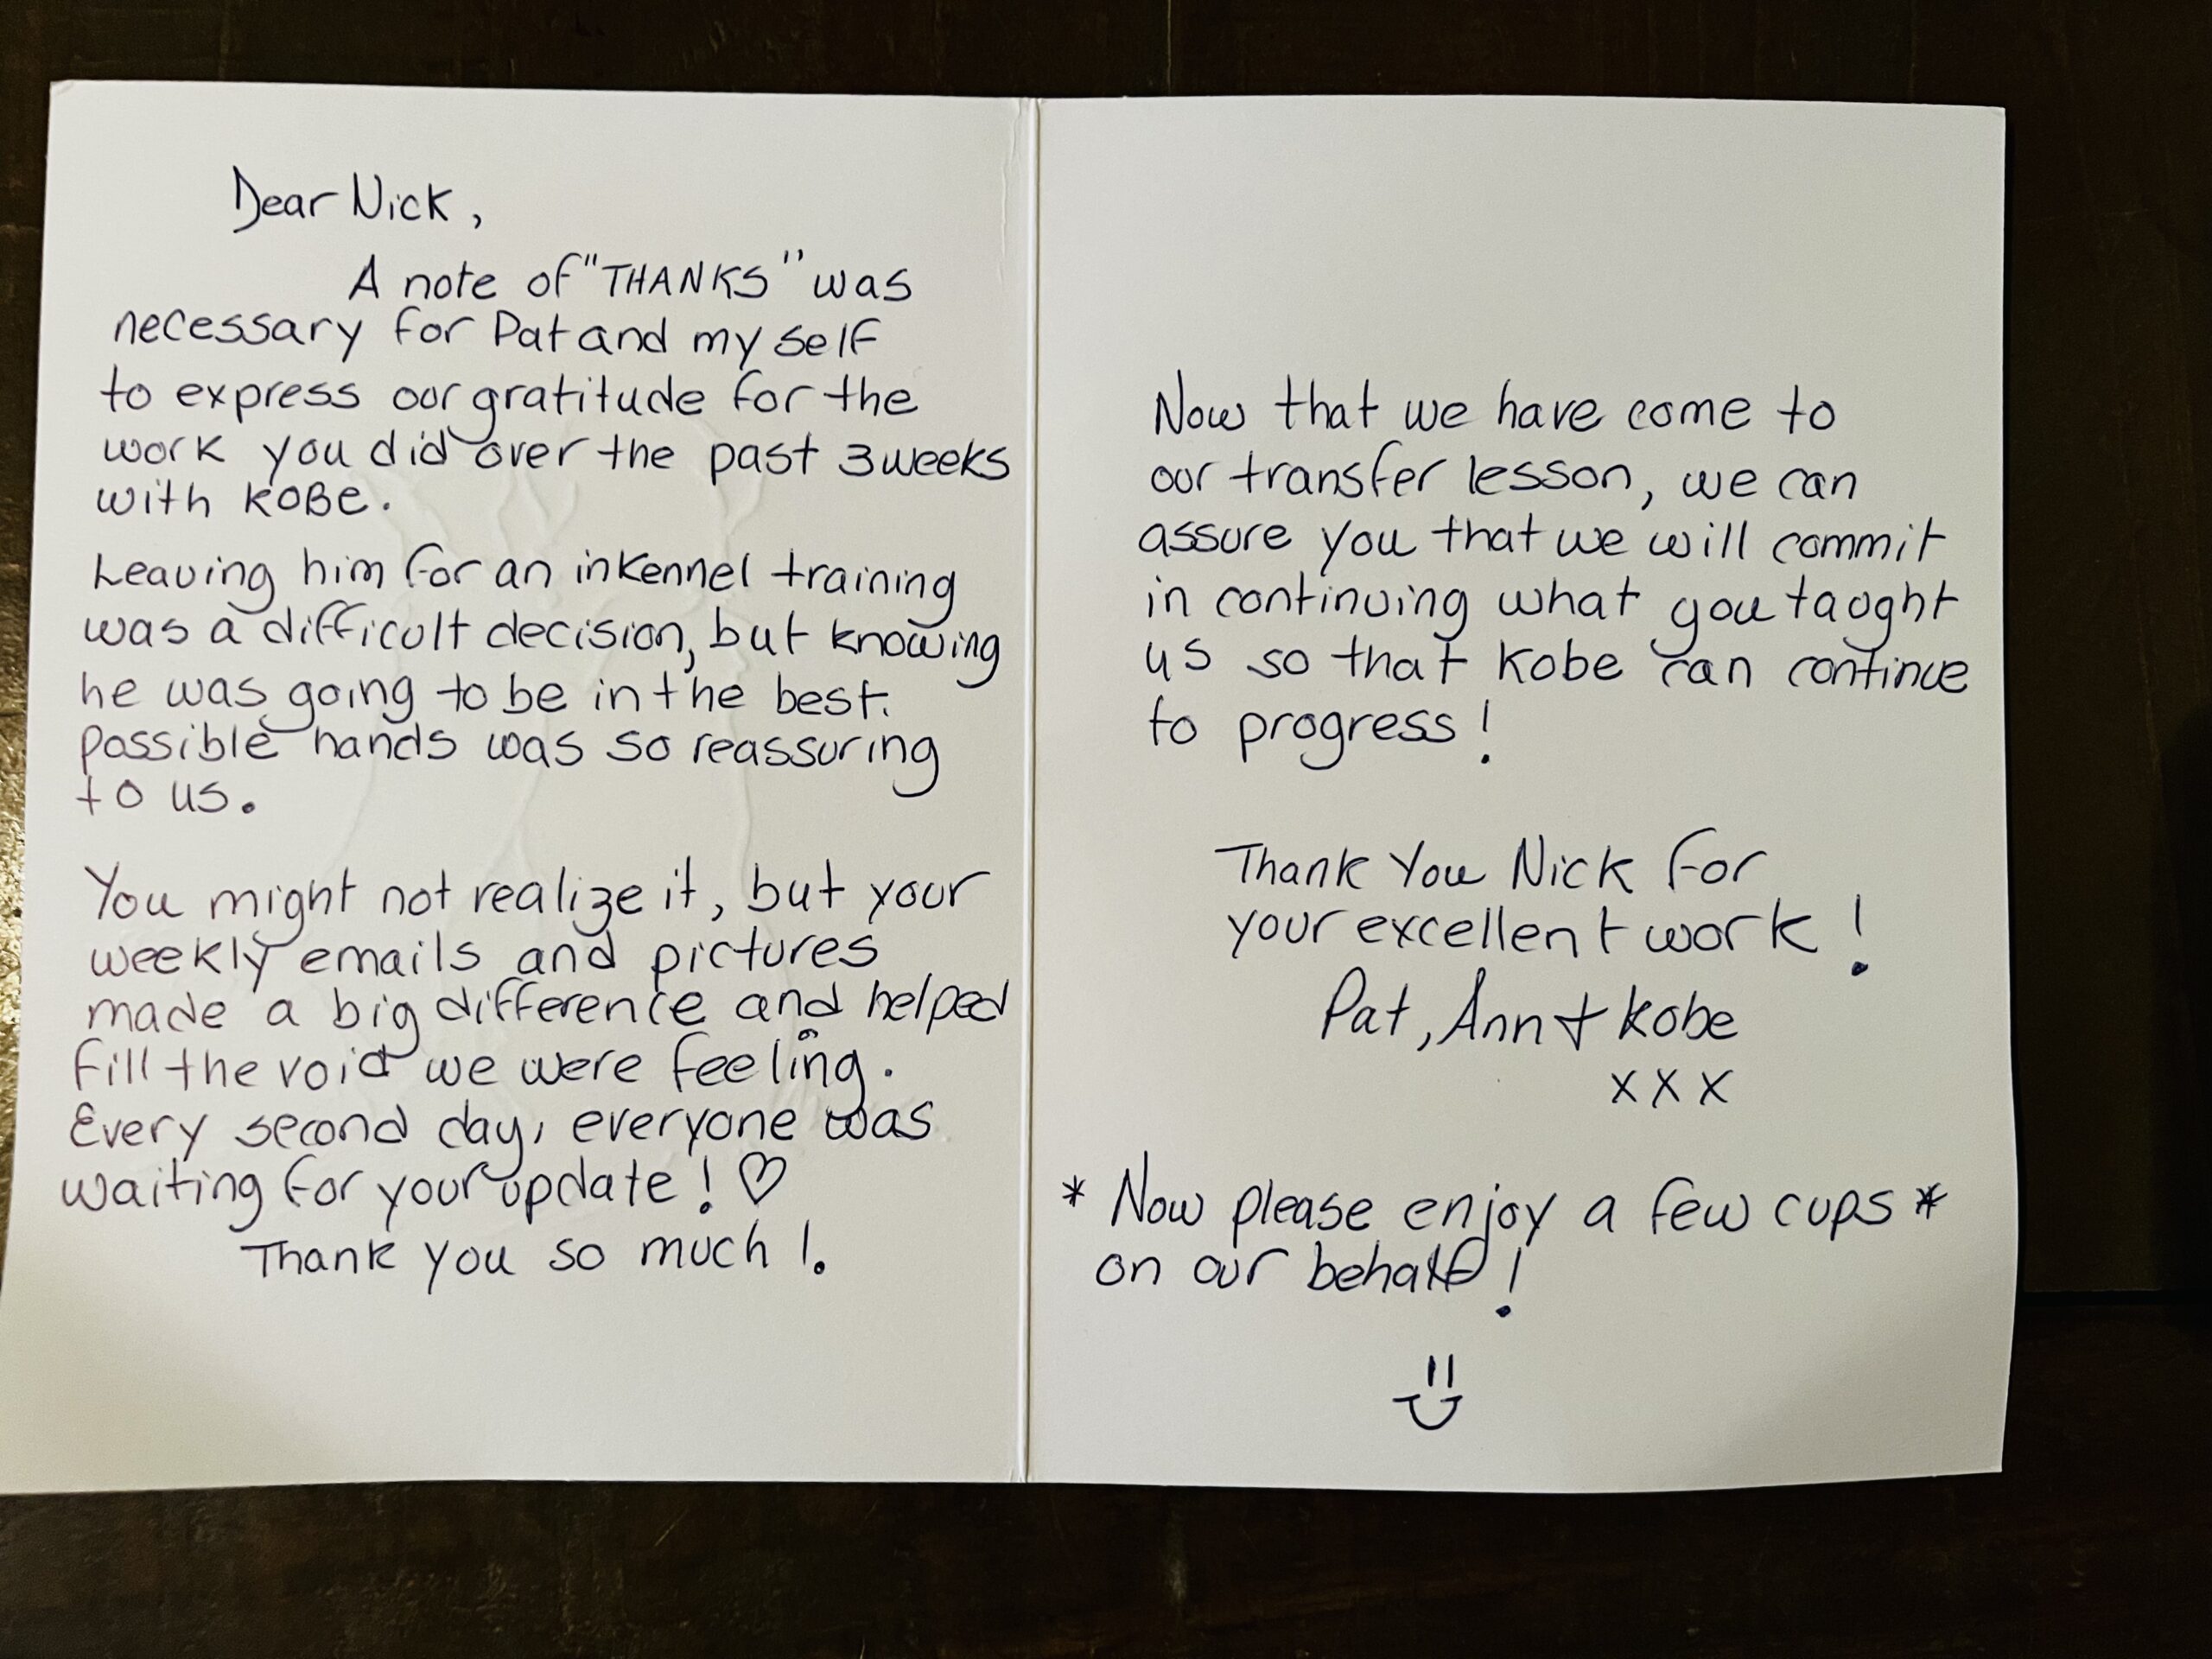 Dear Nick,
A note of "THANKS" was
necessary for Pat and my self
to express our gratitude for the
work you did over the past 3 weeks
with KOBE.
Leaving him for an inkennel training
was a difficult decision, but knowing
he was going to be in the best.
possible hands was so reassuring
to us.
You might not realize it, but your
weekly emails and pictures
made a big difference and helped
fill the void we were feeling.
Every second day, everyone was
waiting for your update! ♡
Thank you so much!.
Now that we have come to
our transfer lesson, we can
assure you that we will commit
in continuing what you taught
us so that Kobe can continue
to progress!
Thank You Nick for
your excellent work!
Pat, Ann + Kobe
xxx
* Now please enjoy a few cups *
on our behalf!